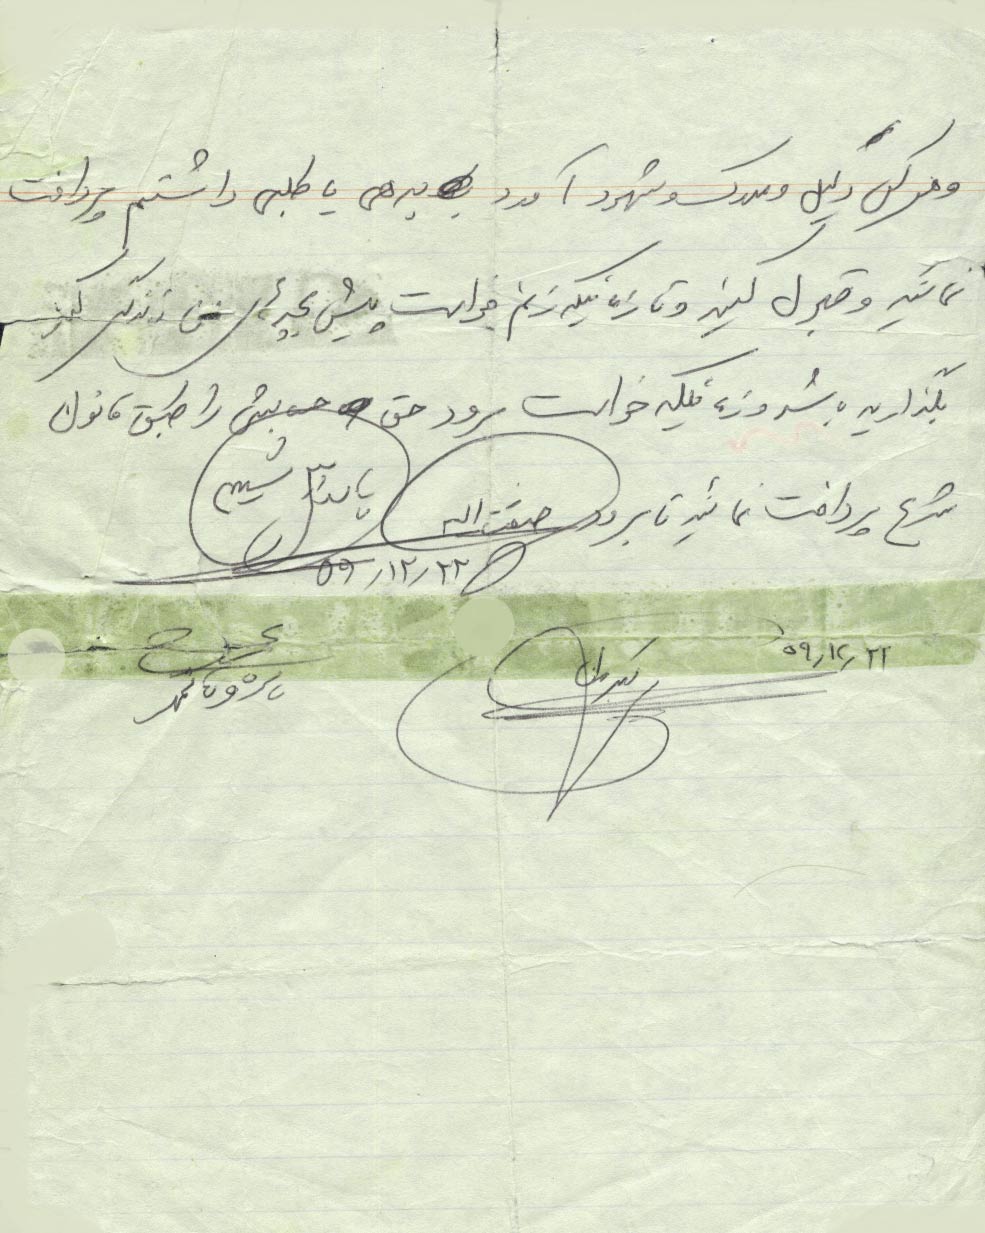 و هر کس دلیل و مدرک و شهود آورد بدهی یا طلبی داشتم پرداخت
نمائید و قبول کنید و تا زمانیکه زنم خواست پیش بچه‌های من زندگی کند
بگذارید باشد و زمانیکه خواست برود حق و حسابش را طبق قانون
شرع پرداخت نمائید تا برود صفت اله
۵۹/۱۲/۲۲
۵۹/۱۲/۲۲